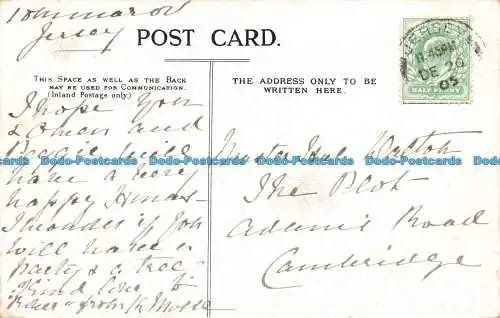 Jersey
POST CARD.
THIS SPACE AS WELL AS THE BACK
MAY BE USED FOR COMMUNICATION.
(Inland Postage only.)
THE ADDRESS ONLY TO BE
WRITTEN HERE.
JERSEY
DE 20
05
HALF PENNY
I hope you
& and
will
have a very
happy Xmas
I wonder if you
will have a
party & a tree
Kind love to
from K
Master
The Plot
Adams Road
Cambridge
Dodo-Postcards Dodo-Postcards Dodo-Postcards Dodo-Postcards Dodo-Postcards Dodo-Postcards